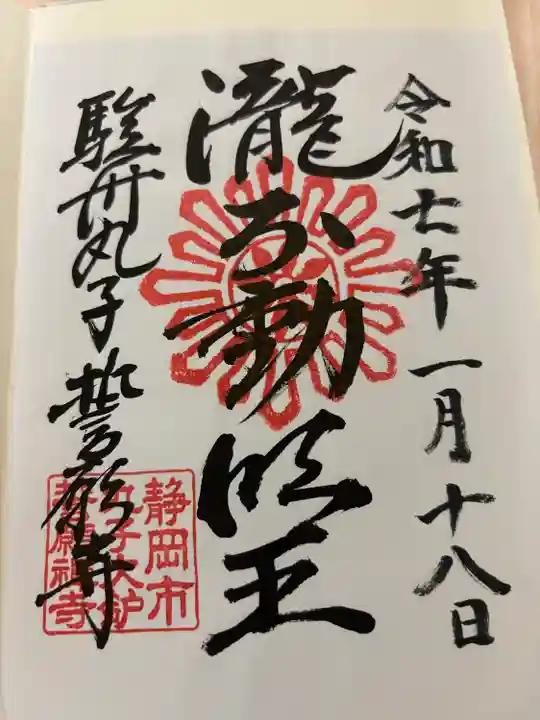 令和七年一月十八日
瀧不動明王
駿州丸子誓願寺
静岡市
丸子大鈩
誓願禅寺